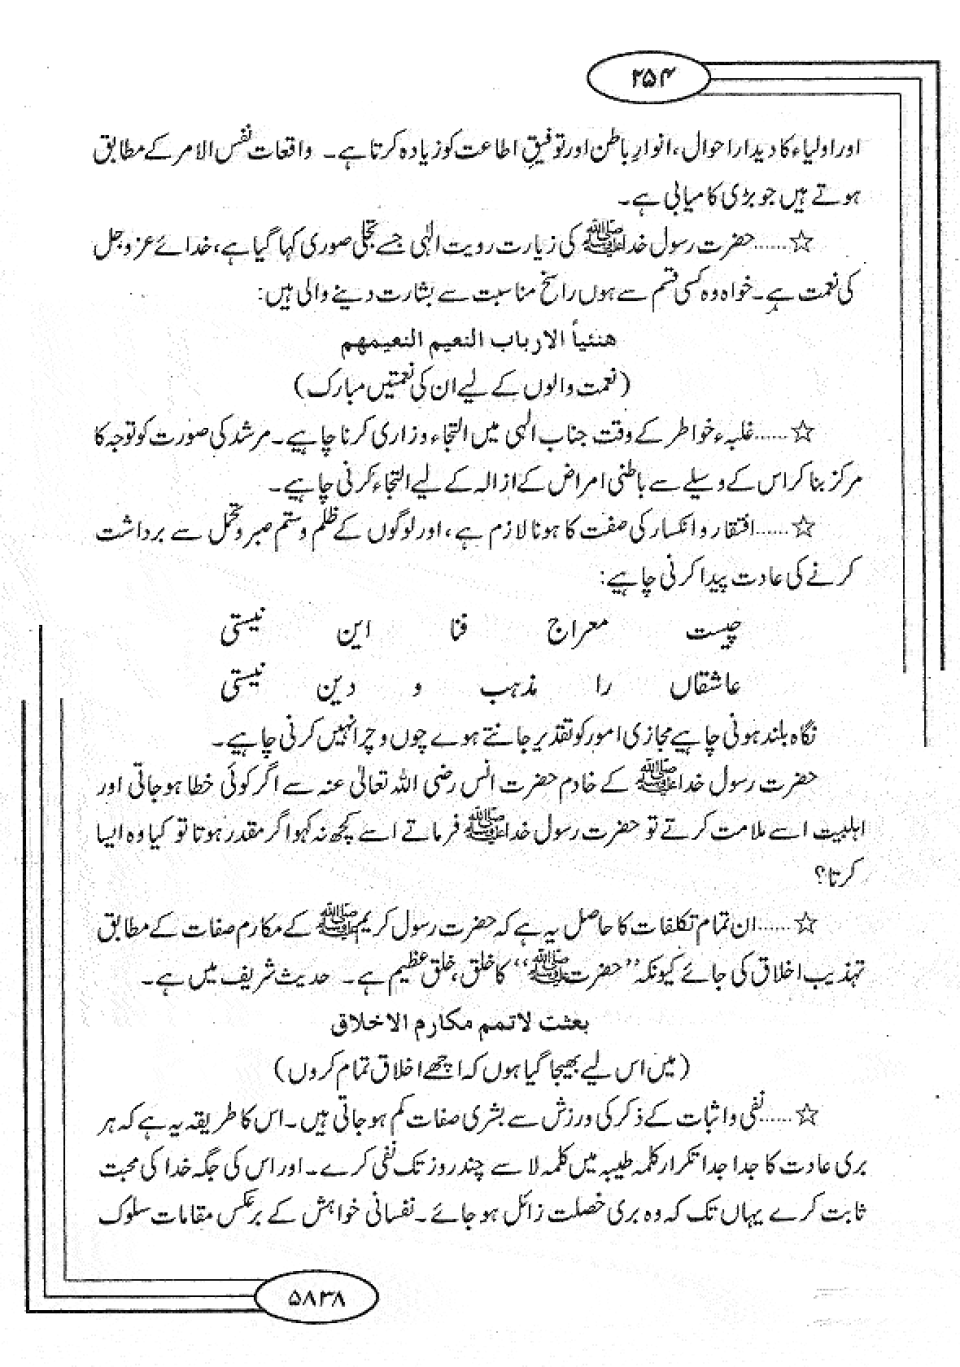 ۲۵۴
اور اولیاء کا دیدار احوال، انوارِ باطن اور توفیقِ اطاعت کو زیادہ کرتا ہے۔ واقعات نفس الامر کے مطابق
ہوتے ہیں جو بڑی کامیابی ہے۔
☆......حضرت رسول خدا ﷺ کی زیارت رویت الٰہی جسے تجلی صوری کہا گیا ہے، خدائے عزوجل
کی نعمت ہے۔ خواہ وہ کسی قسم سے ہوں راسخ مناسبت سے بشارت دینے والی ہیں:
هنئیاً الارباب النعیم النعیمهم
(نعمت والوں کے لیے ان کی نعمتیں مبارک)
☆......غلبہء خواطر کے وقت جناب الٰہی میں التجاء و زاری کرنا چاہیے۔ مرشد کی صورت کو توجہ کا
مرکز بنا کر اس کے وسیلے سے باطنی امراض کے ازالہ کے لیے التجاء کرنی چاہیے۔
☆......افتقار و انکسار کی صفت کا ہونا لازم ہے، اور لوگوں کے ظلم و ستم صبر و تحمل سے برداشت
کرنے کی عادت پیدا کرنی چاہیے:
چیست معراج فنا این نیستی
عاشقاں را مذہب و دین نیستی
نگاہ بلند ہونی چاہیے مجازی امور کو تقدیر جانتے ہوے چوں و چرا نہیں کرنی چاہیے۔
حضرت رسول خدا ﷺ کے خادم حضرت انس رضی اللہ تعالیٰ عنہ سے اگر کوئی خطا ہو جاتی اور
اہلبیت اسے ملامت کرتے تو حضرت رسول خدا ﷺ فرماتے اسے کچھ نہ کہو اگر مقدر ہوتا تو کیا وہ ایسا
کرتا؟
☆......ان تمام تکلفات کا حاصل یہ ہے کہ حضرت رسول کریم ﷺ کے مکارم صفات کے مطابق
تہذیب اخلاق کی جائے کیونکہ ”حضرت ﷺ“ کا خلق، خلق عظیم ہے۔ حدیث شریف میں ہے۔
بعثت لاتمم مکارم الاخلاق
(میں اس لیے بھیجا گیا ہوں کہ اچھے اخلاق تمام کروں)
☆......نفی و اثبات کے ذکر کی ورزش سے بشری صفات کم ہو جاتی ہیں۔ اس کا طریقہ یہ ہے کہ ہر
بری عادت کا جدا جدا تکرار کلمہ طیبہ میں کلمہ لا سے چند روز تک نفی کرے۔ اور اس کی جگہ خدا کی محبت
ثابت کرے یہاں تک کہ وہ بری خصلت زائل ہو جائے۔ نفسانی خواہش کے برعکس مقامات سلوک
۵۸۳۸